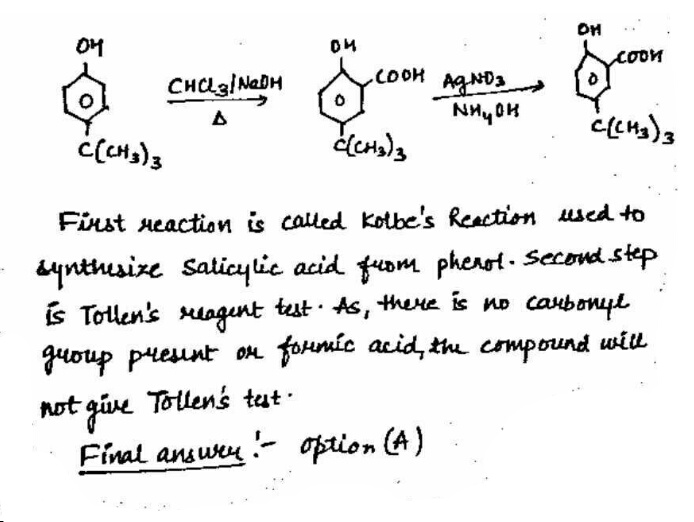 OH OH OH
CHCl₃/NaOH COOH AgNO₃ COOH
Δ NH₄OH
C(CH₃)₃ C(CH₃)₃ C(CH₃)₃
First reaction is called Kolbe's Reaction used to
synthesize salicylic acid from phenol. Second step
is Tollen's reagent test. As, there is no carbonyl
group present or formic acid, the compound will
not give Tollen's test.
Final answer :- option (A)